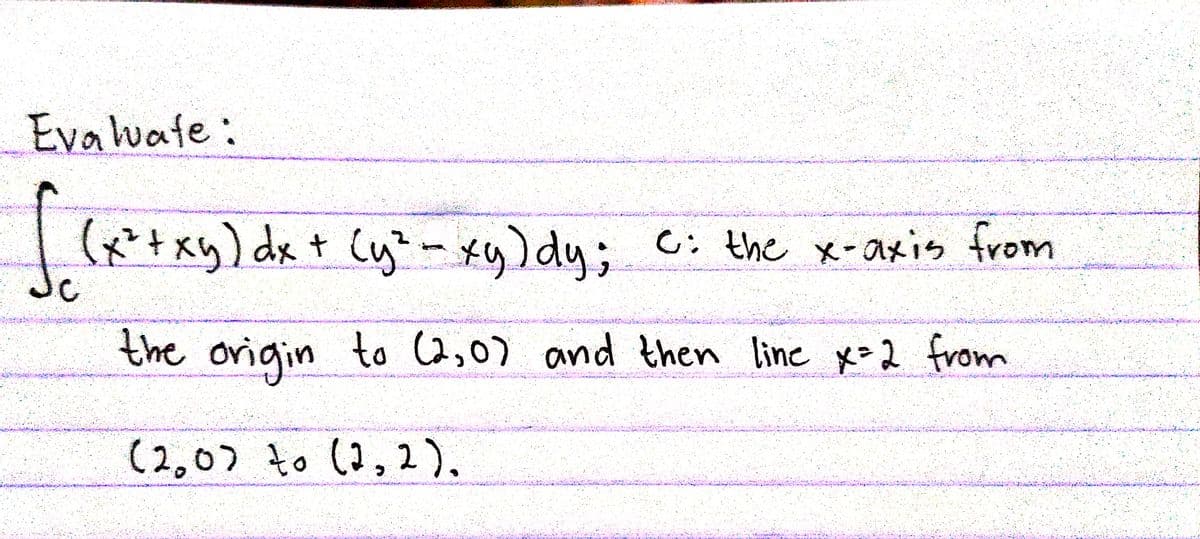 Evaluate:
∫_C (x² + xy) dx + (y² - xy) dy; C: the x-axis from
the origin to (2,0) and then line x=2 from
(2,0) to (2,2).